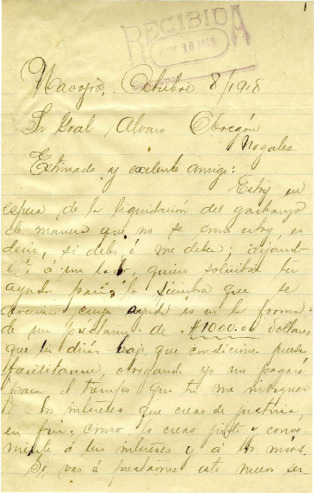 1
RECIBIDA
Navojoa, Octubre 8/1918
Sr Gral Alvaro Obregón
Nogales
Estimado y exelente amigo:
Estoy en
espera de la liquidación del garbanzo
de manera que no se como estoy, es
decir, si debo ó me deben; dejando
á un lado, quiero solicitar tu
ayuda para la siembra que se
cuya ayuda és en la forma
de un prestamo de $1000.00 dollars
que tu dirás bajo que condiciones puedes
facilitarme, yo
para el tiempo que tu me
la interes que creas de justicia,
en fin, como lo creas justo y conve
niente á tus intereses y á los mios.
Si vas á prestarme este nuevo ser